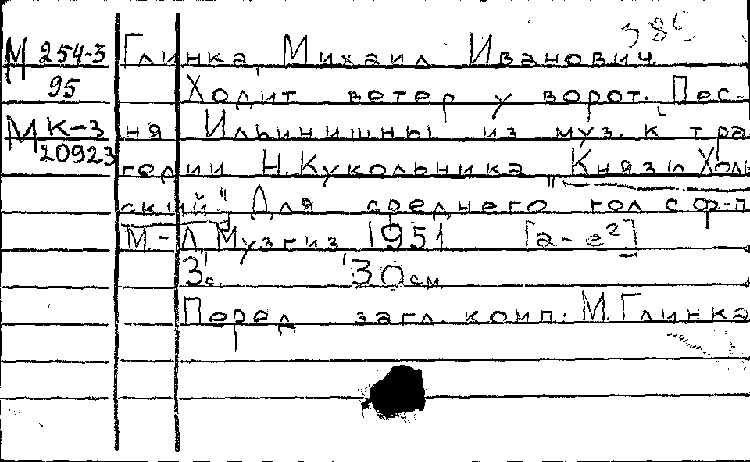 385
М 254-3 Глинка, Михаил Иванович
95 Ходит ветер у ворот. Пес-
М К-3 ня Ильинишны из муз. к тра
20923 гедии Н. Кукольника „Князь Холм
ский" Для среднего гол с ф-п
М.-Л Музгиз 1951 [a-e²]
3с. 30 см
Перед загл. комп: М. Глинка